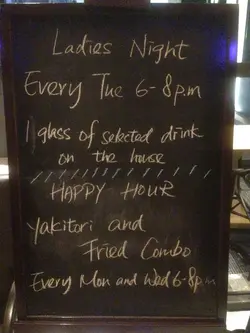 Ladies Night
Every Tue 6-8p.m
1 glass of selected drink
on the house
HAPPY HOUR
Yakitori and
Fried Combo
Every Mon and Wed 6-8p.m